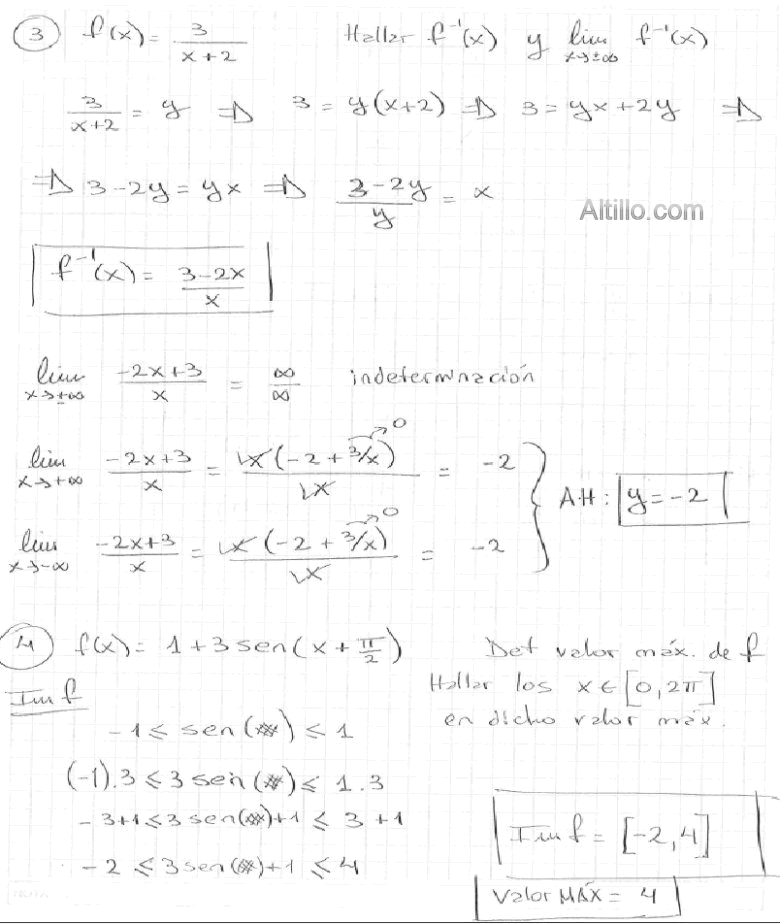 3 f(x) = 3/(x+2) Hallar f⁻¹(x) y lim x→±∞ f⁻¹(x)
3/(x+2) = y ⇒ 3 = y(x+2) ⇒ 3 = yx+2y ⇒
⇒ 3-2y = yx ⇒ (3-2y)/y = x
Altillo.com
f⁻¹(x) = (3-2x)/x
lim x→±∞ (-2x+3)/x = ∞/∞ indeterminación
lim x→+∞ (-2x+3)/x = x(-2+3/x)/x = -2
→0
AH: y=-2
lim x→-∞ (-2x+3)/x = x(-2+3/x)/x = -2
→0
4 f(x) = 1+3sen(x+π/2) Det valor máx. de f
Hallar los x∈[0,2π]
en dicho valor máx.
Im f
-1 ≤ sen( ) ≤ 1
(-1).3 ≤ 3sen( ) ≤ 1.3
-3+1 ≤ 3sen( )+1 ≤ 3+1
-2 ≤ 3sen( )+1 ≤ 4
Im f = [-2,4]
Valor MÁX = 4